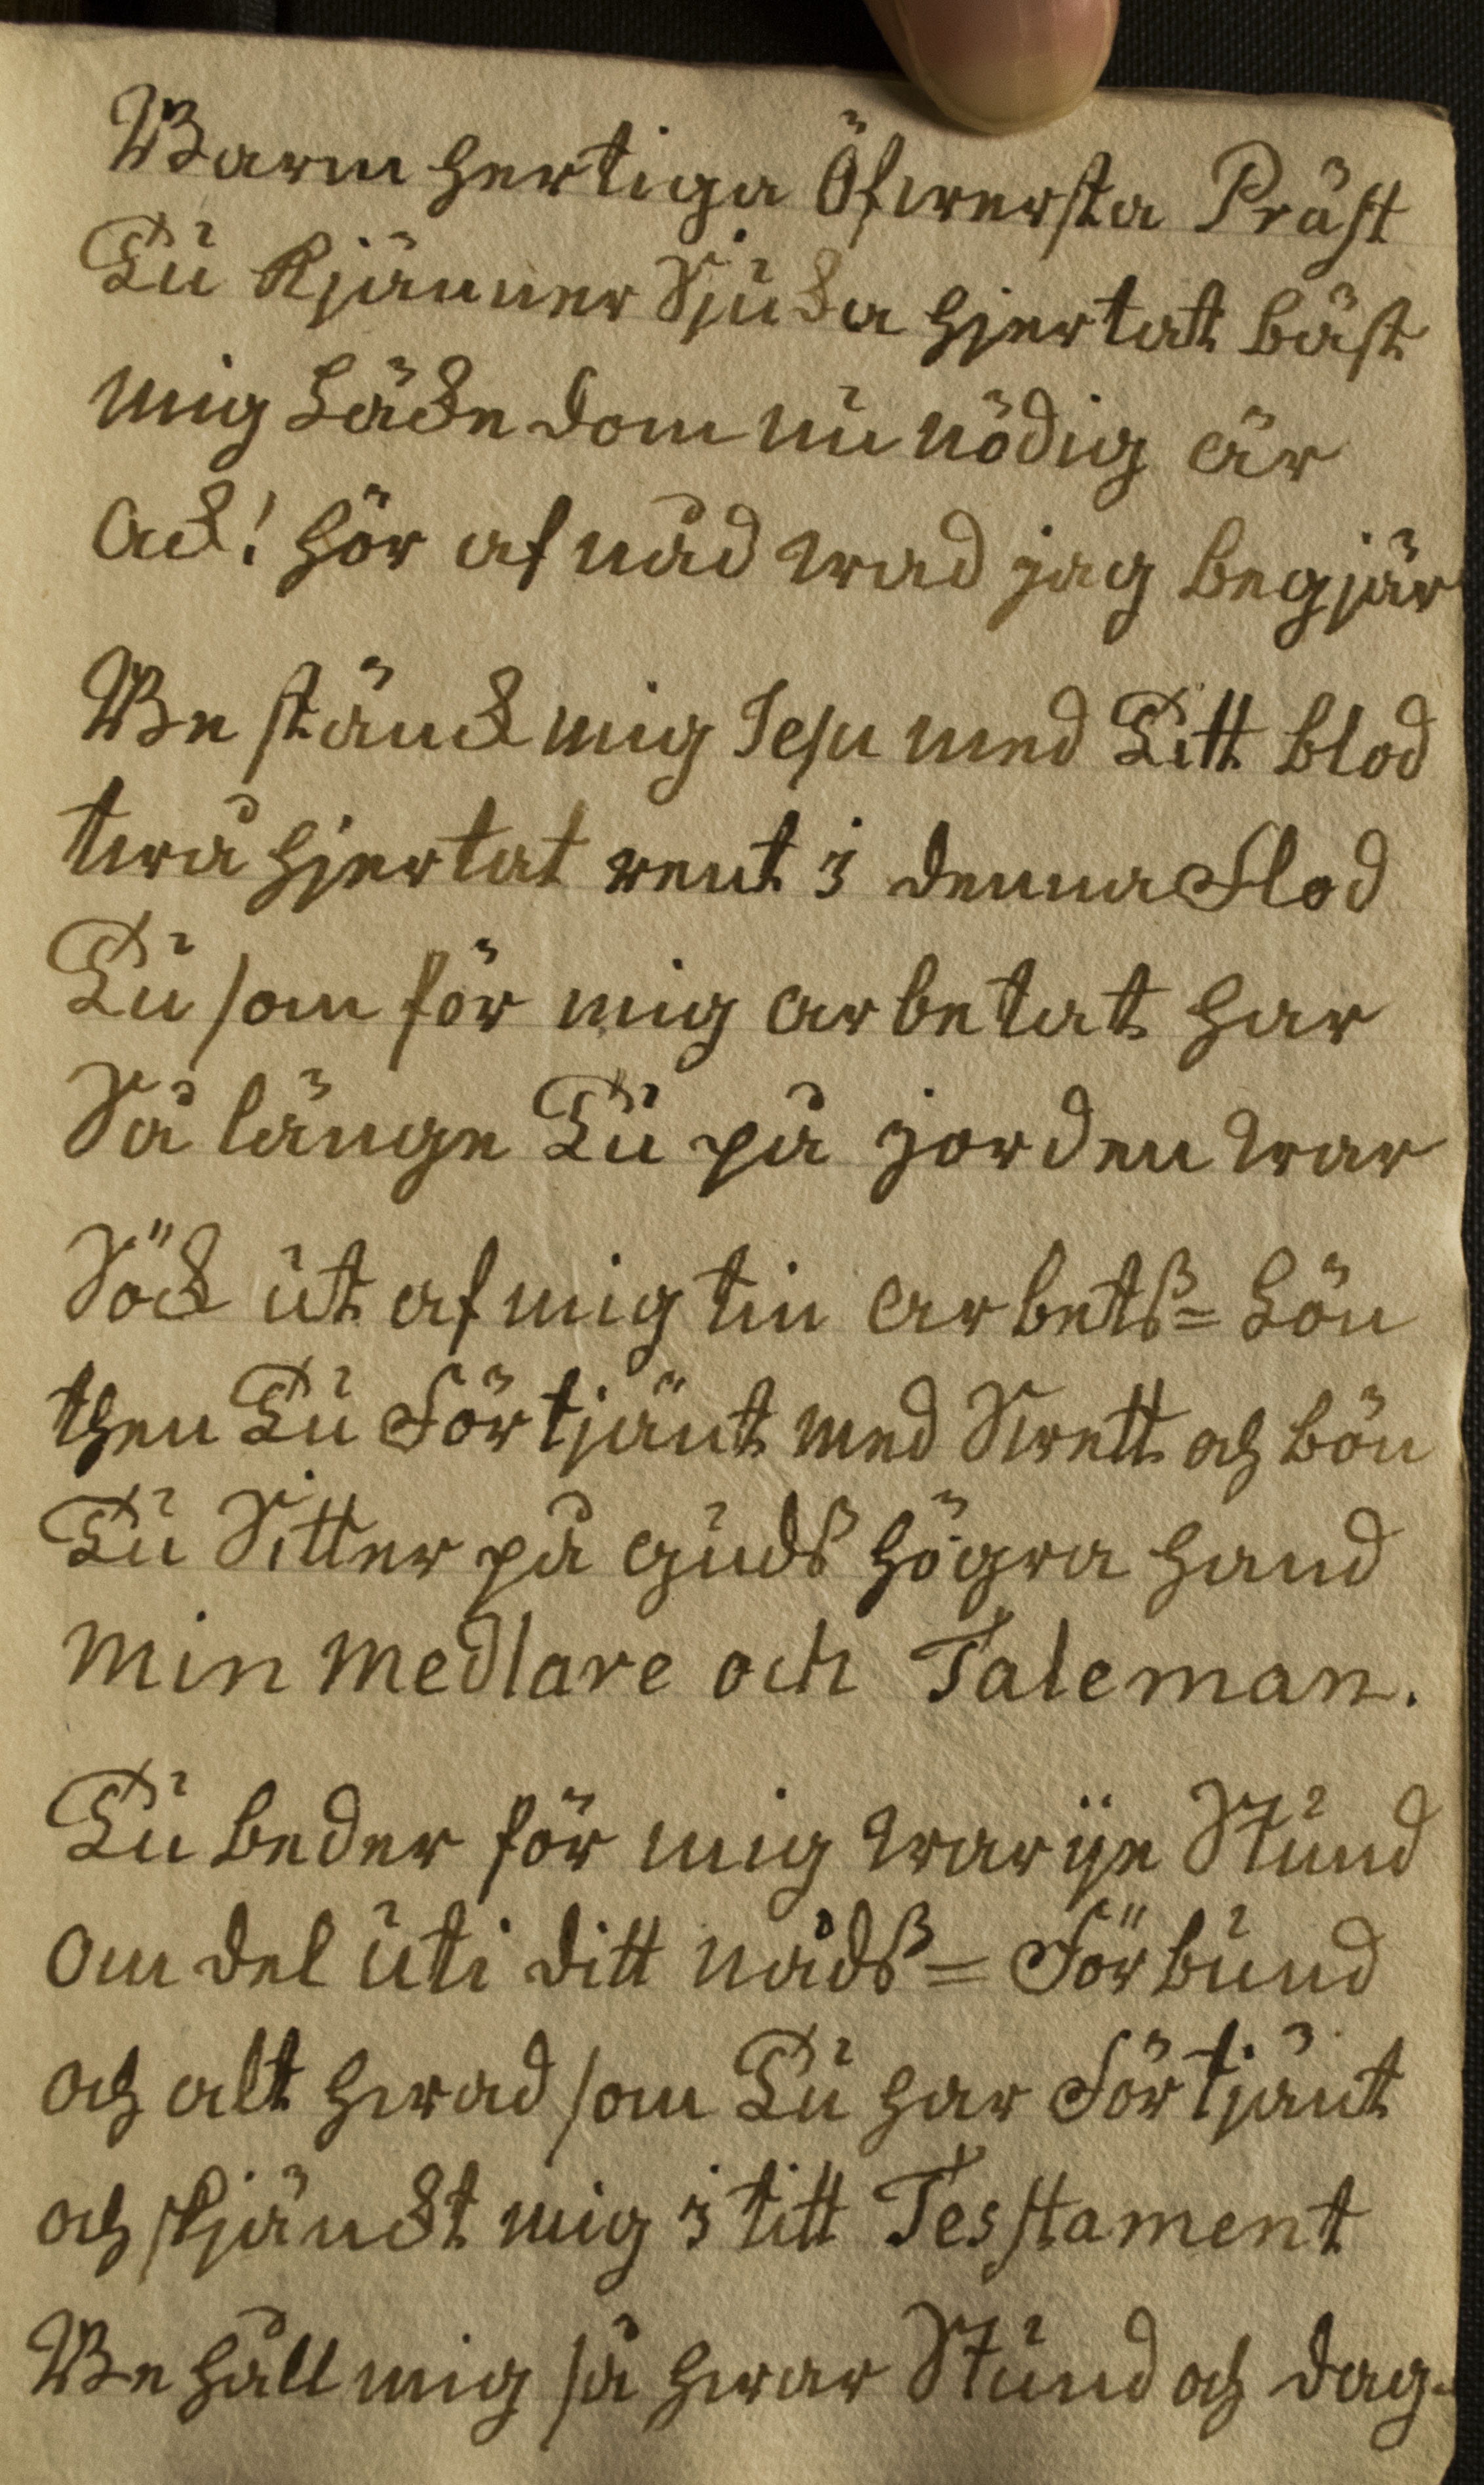 Barmhertiga Öfwersta Präst
Du Kjänner Sjuka hjertatt bäst
mig Läkedom nu nödig är
ack! hör af nåd wad jag begjär
Bestänck mig Jesu med Ditt blod
twå hjertat rent i denna Flod
Du som för mig arbetat har
Så länge Du på jorden war
Sök ut af mig tin arbets= Lön
then Du Förtjänt med Swett och bön
Du Sitter på Guds högra hand
min medlare och Taleman.
Du beder för mig warije Stund
om del uti ditt nåds= Förbund
och alt hwad som Du har Förtjänt
och skjänckt mig i titt Tesstament
Behåll mig så hwar Stund och dag